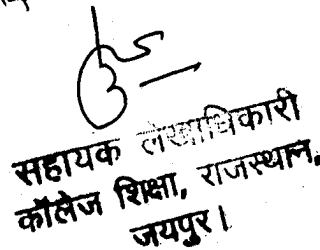 सहायक लेखाधिकारी
कॉलेज शिक्षा, राजस्थान,
जयपुर।